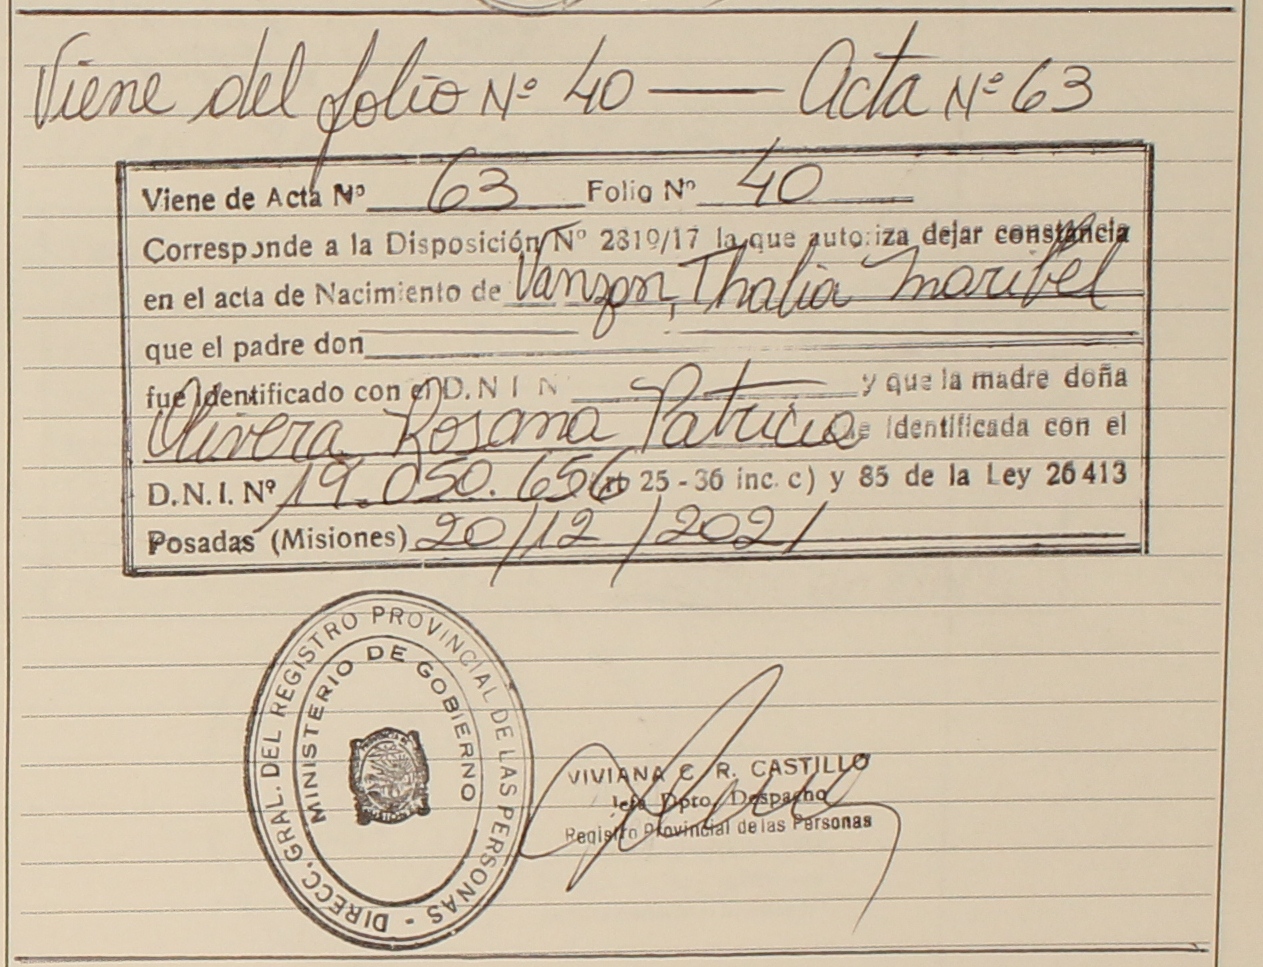 Viene del folio Nº 40 — Acta Nº 63
Viene de Acta Nº 63 Folio Nº 40
Corresponde a la Disposición Nº 2819/17 la que autoriza dejar constancia
en el acta de Nacimiento de Vanzon, Thalia Maribel
que el padre don
fue identificado con el D.N I N — y que la madre doña
Olivera Rosana Patricia fue identificada con el
D.N.I. Nº 19.050.656 (art 25 - 36 inc. c) y 85 de la Ley 26413
Posadas (Misiones) 20/12/2021
DIRECC. GRAL. DEL REGISTRO PROVINCIAL DE LAS PERSONAS -
MINISTERIO DE GOBIERNO
VIVIANA C. R. CASTILLO
Jefa Dpto. Despacho
Registro Provincial de las Personas